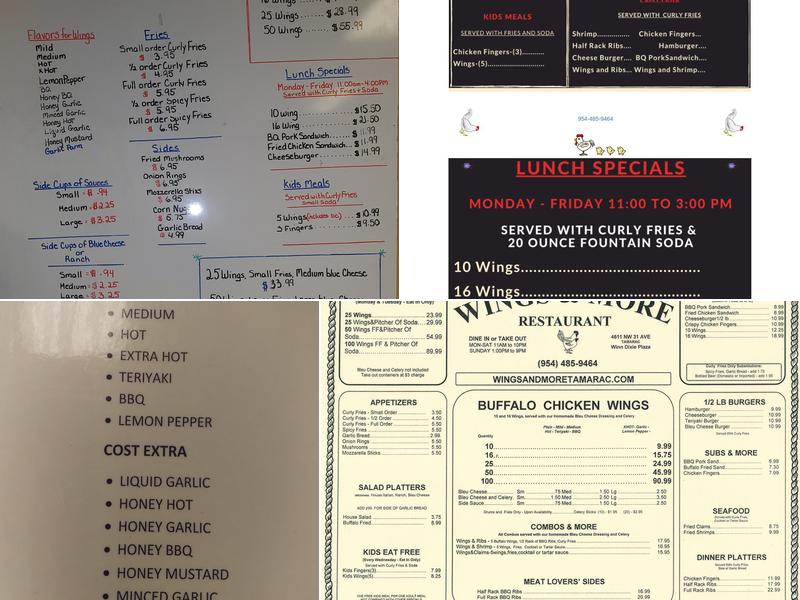 Flavors for Wings
Mild
Medium
Hot
x Hot
Lemon Pepper
BQ
Honey BQ
Honey Garlic
Minced Garlic
Honey Hot
Liquid Garlic
Honey Mustard
Garlic Parm
Side Cups of Sauces
Small = $ .94
Medium = $2.25
Large = $3.25
Side Cups of Blue Cheese
or
Ranch
Small = $ .94
Medium = $2.25
Large = $3.25
Fries
Small order Curly Fries
$ 3.95
1/2 order Curly Fries
$ 4.95
Full order Curly Fries
$ 5.95
1/2 order Spicy Fries
$ 5.95
Full order Spicy Fries
$ 6.95
Sides
Fried Mushrooms
$ 6.95
Onion Rings
$ 6.95
Mozzerella Stixs
$ 6.95
Corn
$ 6.75
Garlic Bread
$ 4.99
25 Wings ...... $28.99
50 Wings ..... $55.99
Lunch Specials
Monday - Friday 11:00am-4:00pm
Served with Curly Fries + Soda
10 wing ........... $15.50
16 Wing ........... $21.50
BQ Pork Sandwich .... $ 11.99
Fried Chicken Sandwich... $ 11.99
Cheeseburger ....... $14.99
Kids Meals
Served with Curly Fries
Small Soda
5 Wings ... $10.99
3 Fingers ......... $9.50
25 Wings, Small Fries, Medium blue Cheese
$ 33.99
KIDS MEALS
SERVED WITH FRIES AND SODA
Chicken Fingers-(3)............
Wings-(5)......................
SERVED WITH CURLY FRIES
Shrimp............... Chicken Fingers...
Half Rack Ribs.... Hamburger....
Cheese Burger.... BQ PorkSandwich....
Wings and Ribs... Wings and Shrimp....
954-485-9464
LUNCH SPECIALS
MONDAY - FRIDAY 11:00 TO 3:00 PM
SERVED WITH CURLY FRIES &
20 OUNCE FOUNTAIN SODA
10 Wings.......................................
16 Wings.......................................
• MEDIUM
• HOT
• EXTRA HOT
• TERIYAKI
• BBQ
• LEMON PEPPER
COST EXTRA
• LIQUID GARLIC
• HONEY HOT
• HONEY GARLIC
• HONEY BBQ
• HONEY MUSTARD
• MINCED GARLIC
(Monday & Tuesday - Eat In Only)
25 Wings 23.99
25 Wings&Pitcher Of Soda...29.99
50 Wings FF&Pitcher Of
Soda 54.99
100 Wings FF & Pitcher Of
Soda 89.99
Bleu Cheese and Celery not included
Take out containers at $3 charge
APPETIZERS
Curly Fries - Small Order 3.50
Curly Fries - 1/2 Order 4.50
Curly Fries - Full Order 5.50
Spicy Fries 5.50
Garlic Bread 2.99
Onion Rings 5.50
Mushrooms 5.50
Mozzarella Sticks 5.50
SALAD PLATTERS
House Salad 3.75
Buffalo Fried 8.99
KIDS EAT FREE
(Every Wednesday - Eat In Only)
Served with Curly Fries & Soda
Kids Fingers(3) 7.99
Kids Wings(5) 8.25
WINGS & MORE
RESTAURANT
DINE IN or TAKE OUT
MON-SAT 11AM to 10PM
SUNDAY 1:00PM to 9PM
4611 NW 31 AVE
TAMARAC
Winn Dixie Plaza
(954) 485-9464
WINGSANDMORETAMARAC.COM
BUFFALO CHICKEN WINGS
10 and 16 Wings, served with our homemade Bleu Cheese Dressing and Celery
Plain - Mild - Medium
Hot - Teriyaki - BBQ
XHOT- Garlic -
Lemon Pepper -
Quantity
10 9.99
16 15.75
25 24.99
50 45.99
100 90.99
Bleu Cheese Sm .75 Med 1.50 Lg 2.50
Bleu Cheese and Celery Sm .75 Med 1.50 Lg 2.50
Side Sauce Sm .75 Med 1.50 Lg 2.50
COMBOS & MORE
All Combos served with our homemade Bleu Cheese Dressing and Celery
Wings & Ribs - 5 Buffalo Wings, 1/2 Rack of BBQ Ribs, Curly Fries 17.95
Wings & Shrimp - 5 Wings, Fries, Cocktail or Tartar Sauce 16.95
Wings&Clams-5wings,fries,cocktail or tartar sauce 15.95
MEAT LOVERS' SIDES
Half Rack BBQ Ribs 16.99
Full Rack BBQ Ribs 20.99
BBQ Pork Sandwich 8.99
Fried Chicken Sandwich 8.99
Cheeseburger1/2 lb 10.99
Crispy Chicken Fingers 10.99
10 Wings 12.25
16 Wings 18.99
Curly Fries Only Substitutions:
Spicy Fries, Garlic Bread - add 1.75
Bottled Beer (Domestic or Imported) - add 1.95
1/2 LB BURGERS
Hamburger 9.99
Cheeseburger 10.99
Teriyaki Burger 10.99
Bleu Cheese Burger 10.99
Served With Curly Fries
SUBS & MORE
BBQ Pork Sand 8.99
Buffalo Fried Sand 7.30
Chicken Fingers 7.99
SEAFOOD
Served with Curly Fries,
Cocktail or Tartar Sauce
Fried Clams 8.75
Fried Shrimps 9.99
DINNER PLATTERS
Served With Curly Fries,
Side of Garlic Bread
Chicken Fingers 11.99
Half Rack Ribs 16.99